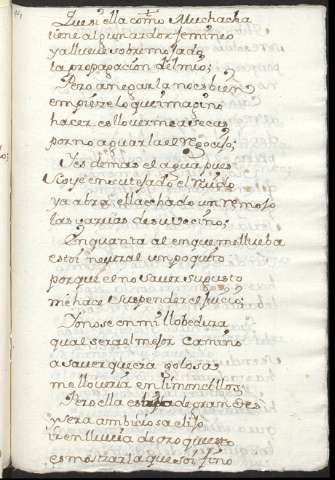 Que si ella como Muchacha
tiene algun ardor femineo
ya llueve sobre mojado
la propagacion del mio;
Pero anegarla no es bien
empieze lo que imagino
hacer es llover me a secas
por no aguarla el Negocio;
Ies demas el agua pues
oye en cuio el Ruido
ya abra ella echado un Remojo
las de su Vecino;
En quanto al en que me llueba
estoi neutral un poquito
porque el no saver su gusto
me hace suspender el juicio;
Yo no se en mi llobedura
qual sera el mejor Camino
a saver que era golosa
me lloviera en limoncillos;
Pero ella es de gran
y sera ambiciosa elijo
ir en lluvia de oro que esto
es mostrarla que soi fino